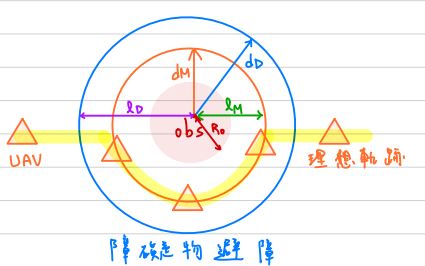 dM
dD
lD
lM
obs
Ro
UAV
理想軌跡
障礙物避障